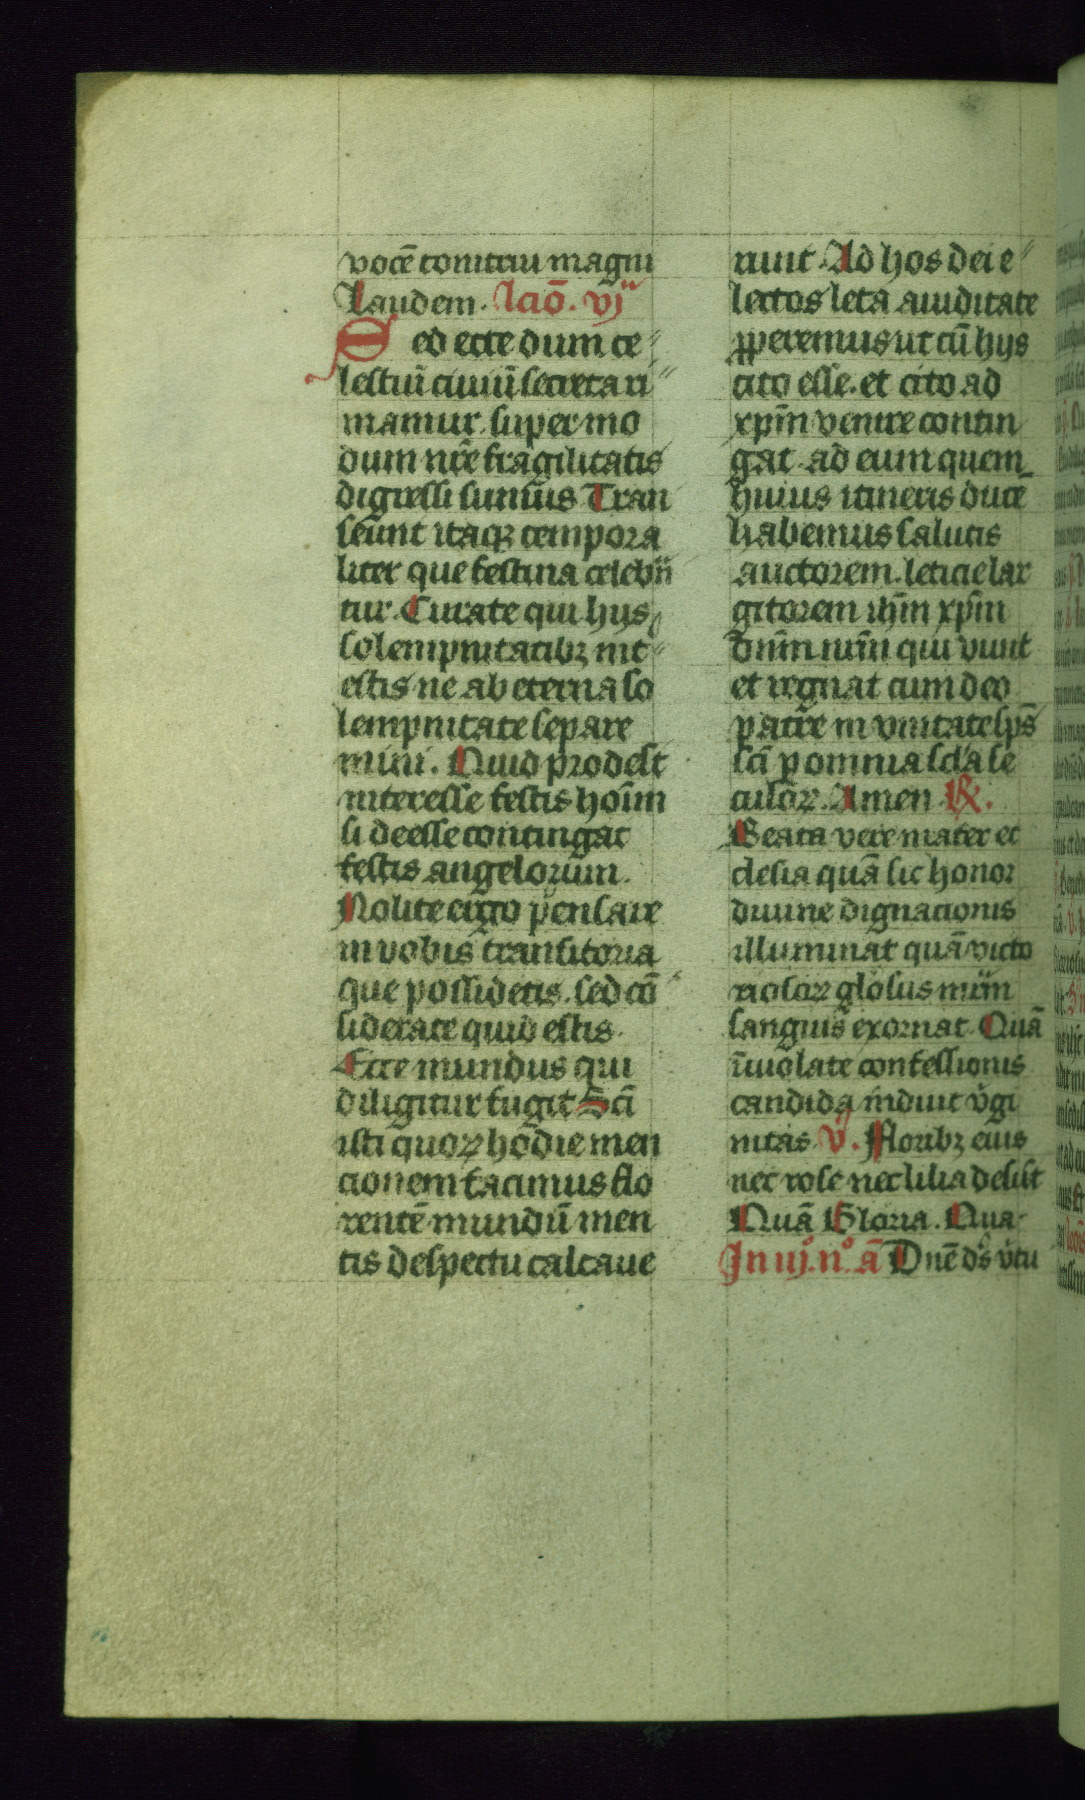 vocē tonitrui magni
Laudem. lc̄io. vjᵃ
Sed ecce dum ce″
lestiū ciuiū secreta ri″
mamur. super mo
dum nr̄e fragilitatis
digressi sumus Tran
seunt itaqꝫ tempora
liter que festiua celebrā
tur. Curate qui hijs
solempnitatibꝫ int″
estis ne ab eterna so
lempnitate separe
mini. Quid prodest
interesse festis hoīm
si deesse contingat
festis angelorum.
Nolite ergo pensare
in vobis transitoria
que possidetis. sed cō″
siderate quid estis.
Ecce mundus qui
diligitur fugit Sc̄i
isti quoꝝ hodie men
cionem facimus flo
rentē mundū men
tis despectu calcaue
runt. Ad hos dei e″
lectos leta auiditate
ꝓperemus ut cū hijs
cito esse. et cito ad
xpm̄ venire contin
gat. ad eum quem
huius itineris ducē
habemus salutis
auctorem. leticie lar
gitorem ihm̄ xpm̄
dnm̄ nr̄m qui viuit
et regnat cum deo
patre in vnitate sps̄
sc̄i ꝑ omnia scl̄a se
culoꝝ. Amen ℟.
Beata vere mater ec
clesia quā sic honor
diuine dignacionis
illuminat quā victo
rioſoꝝ gl̄osus mr̄m
sanguis exornat. Quā
īuiolate confessionis
candida induit v̓gi
nitas ℣. Floribꝫ eius
nec rose nec lilia desūt
Quā Gloria. Qua
In iijº. nº. ā Dn̄e ds̄ v̓tu